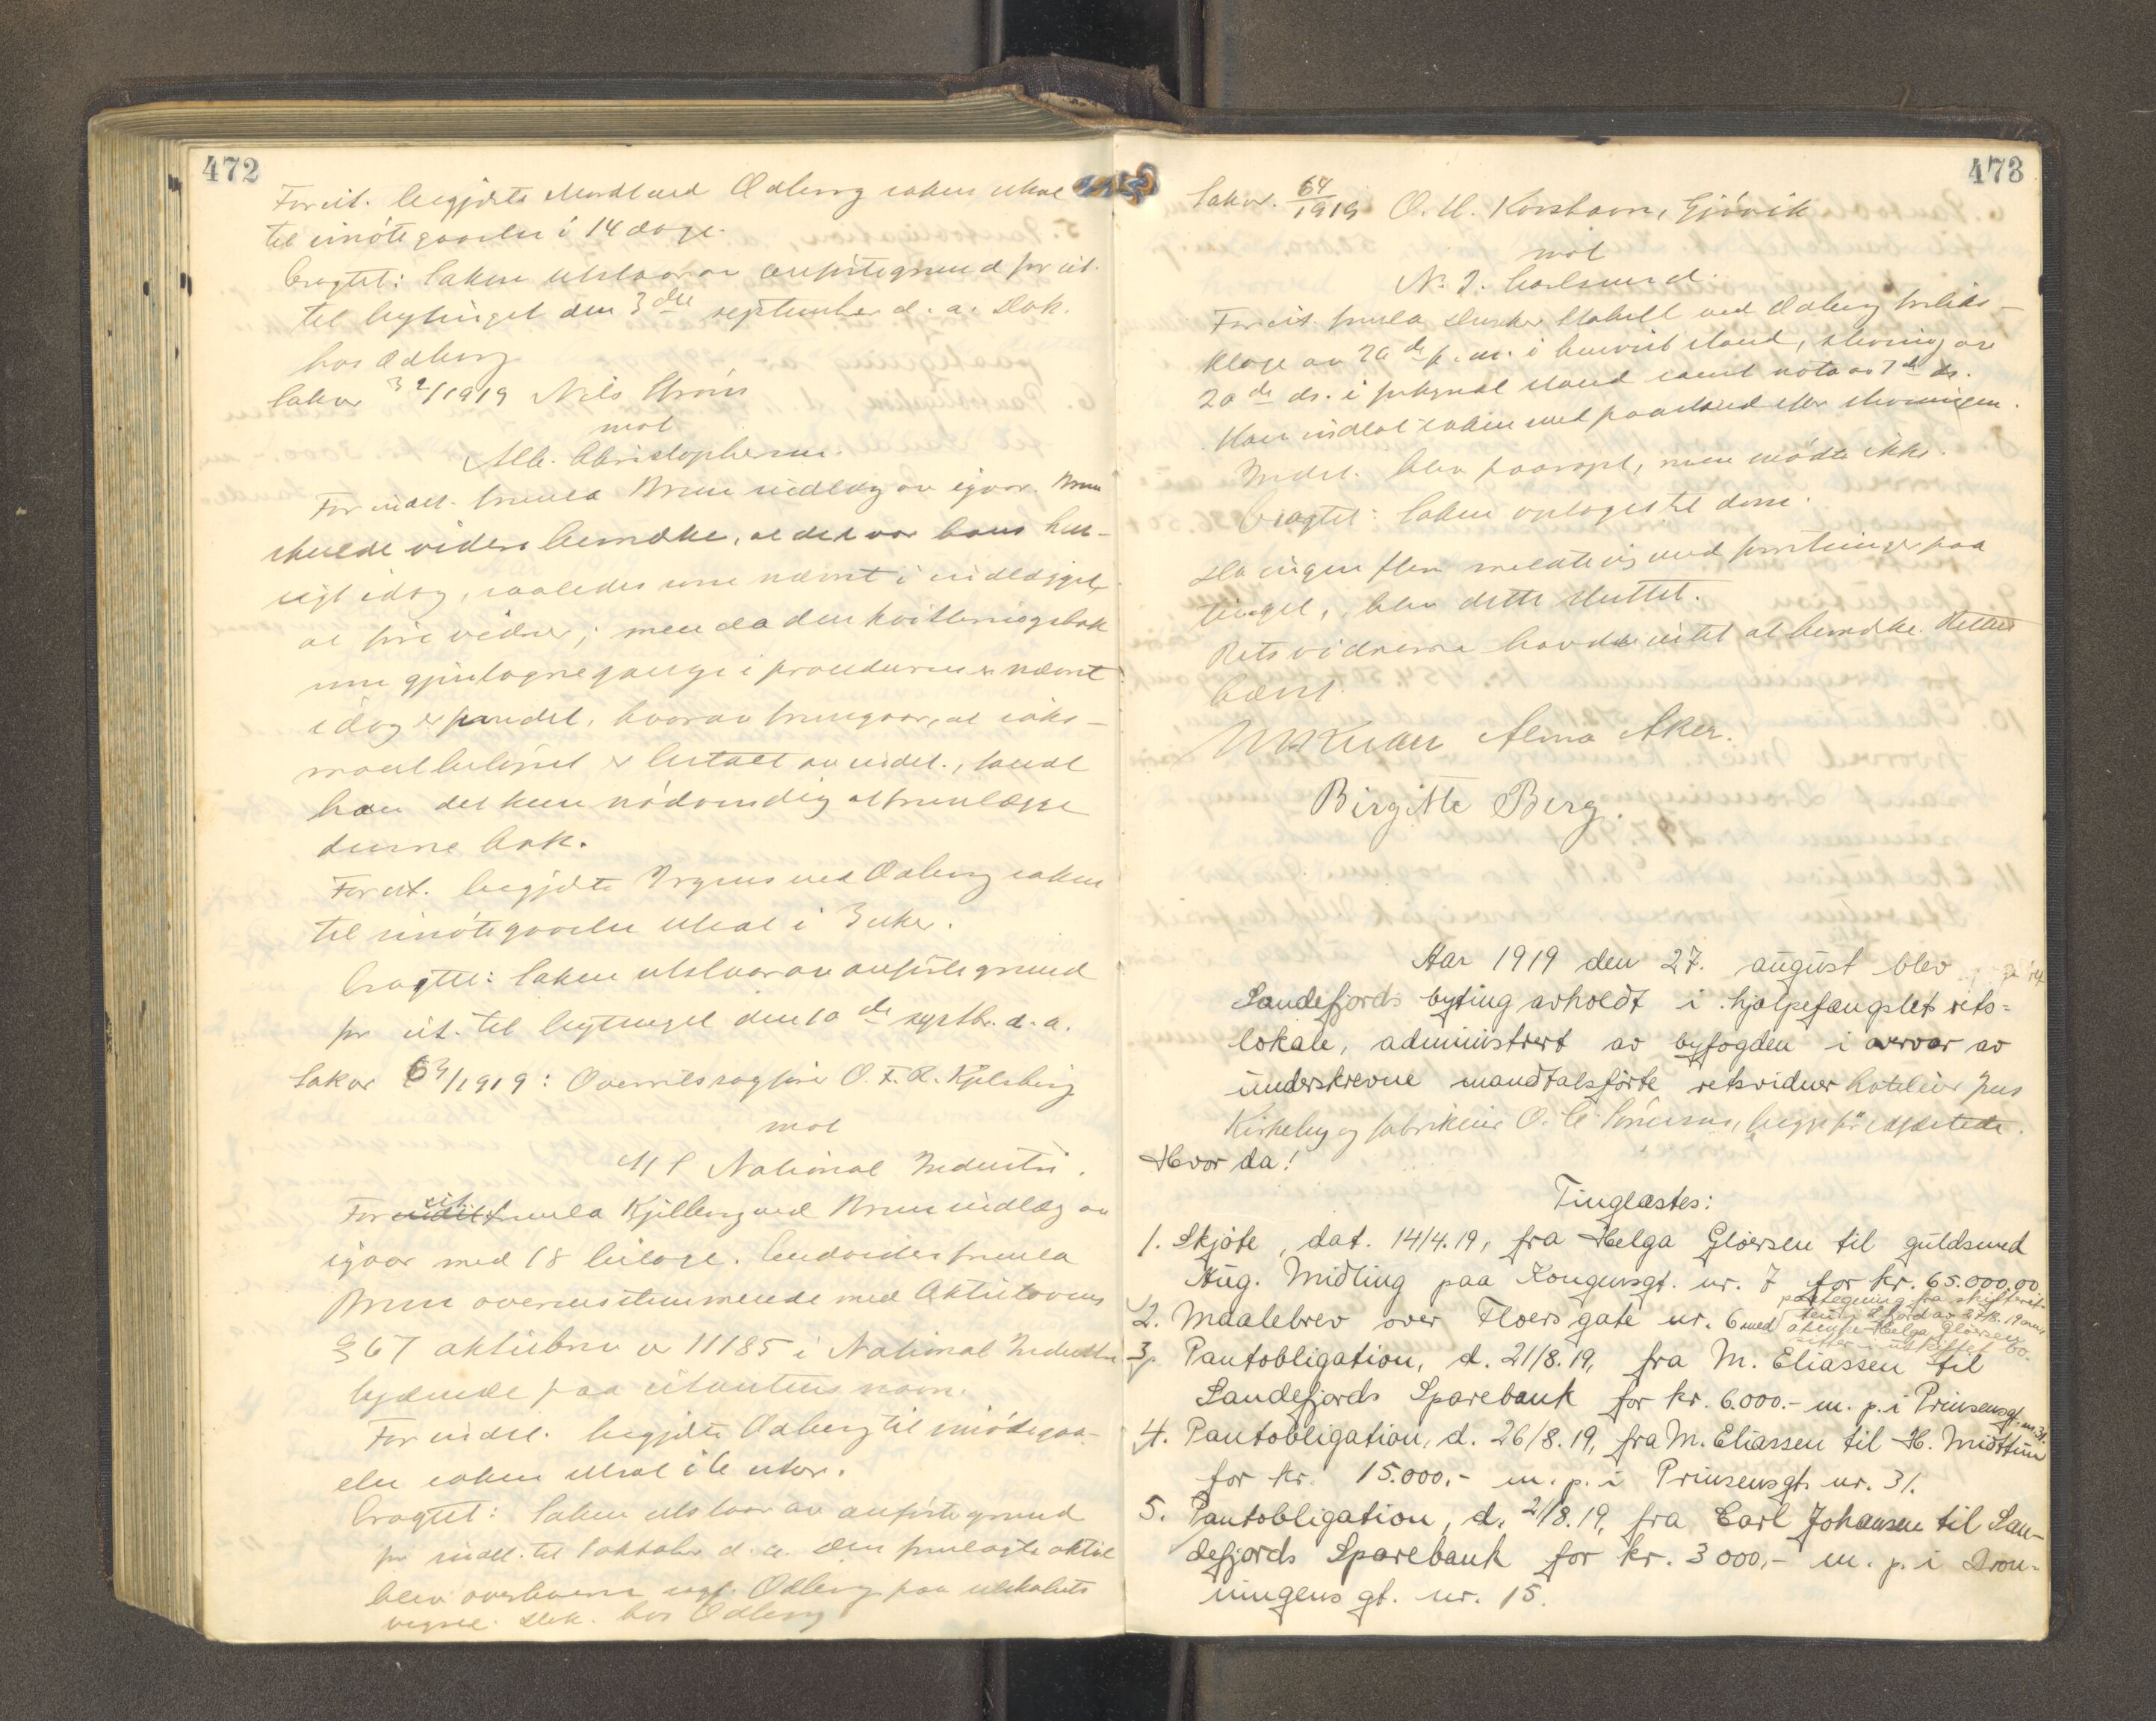 472
For cit. begjærte Nordlund Ødberg saken utsat
til imøtegaaelse i 14 dage.
Eragtet: Saken utstaar av anførte grund for cit.
til bytinget den 3die september d. a. Dok.
hos Ødberg
Sak nr 32/1919 Nils Strøm
mot
Alb. Christophersen.
For indst. fremla Bruun indlæg av igaar. Bruun
skulde videre bemerke, at det var hans hen-
sigt idag, saaledes som nævnt i indlægget
at føre vidner; men da den kvitteringsbok
som gjentagne gange i proceduren er nævnt
idag er fundet, hvorav fremgaar, at saks-
maalbeløpet er betalt av indst., fandt
han det kun nødvendig at fremlægge
denne bok.
For cit. begjærte ved Ødberg saken
til imøtegaaelse utsat i 3 uker.
Eragtet: Saken utstaar av anførte grund
for cit. til bytinget den 10de septbr. d. a.
Sak nr 69/1919: Overretssagfører O. F. R. Kjelsberg
mot
A/S National Industri.
For cit. fremla Kjelsberg ved Bruun indlæg av
igaar med 18 bilage. Endvidere fremla
Bruun overensstemmende med Aktielovens
§ 67 aktiebrev nr 11185 i National Industri
lydende paa citantens navn.
For indst. begjærte Ødberg til imøtegaa-
else saken utsat i 6 uker.
Eragtet: Saken utstaar av anførte grund
for indst. til 1 oktober d. a. Den fremlagte aktie
blev overlevert sagf. Ødberg paa selskabets
vegne. Dok. hos Ødberg
473
Sak nr. 64/1919 O. H. Korshavn, Gjøvik
mot
N. J. Carlsund.
For cit. fremla Stabell ved Ødberg forliks-
klage av 26de f. m. i bevist stand, stevning av
20de ds. i forkynt stand samt nota av 7de ds.
Han indlot saken med paastand efter stevningen.
Indst. blev paaropt, men mødte ikke.
Eragtet: Saken optages til dom.
Da ingen flere meldte sig med forretninger paa
tinget, blev dette sluttet.
Retsvidnerne havde intet at bemerke. Retten
hævet.
Alma Aker.
Birgitte Berg.
Aar 1919 den 27. august blev
Sandefjords byting avholdt i hjelpefængslets rets-
lokale, administrert av byfogden i overvær av
underskrevne mandtalsførte retsvidner hotelier Jens
Kirkeby og fabrikeier O. C. Sørensen, begge før edfæstede.
Hvor da!
Tinglæstes:
1. Skjøte, dat. 14/4.19, fra Helga Gløersen til guldsmed
Aug. Midling paa Kongensgt. nr. 7 for kr. 65.000,00.
2. Maalebrev over Floers gate nr. 6 med paategning fra skifteret-
ten i Sfjord av 27/8.19 om at enke Helga Gløersen
sitter i uskiftet bo.
3. Pantobligation, d. 21/8.19, fra M. Eliassen til
Sandefjords Sparebank for kr. 6.000.- m. p. i Prinsensgt. nr. 31.
4. Pantobligation, d. 26/8.19, fra M. Eliassen til H. Midttun
for kr. 15.000,- m. p. i Prinsensgt. nr. 31.
5. Pantobligation, d. 21/8.19, fra Carl Johansen til San-
defjords Sparebank for kr. 3000,- m. p. i Dron-
ningens gt. nr. 15.